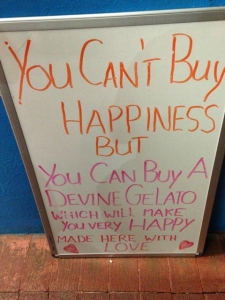 You Can't Buy
Happiness
But
You Can Buy A
Devine Gelato
which will make
you very Happy
made here with
Love